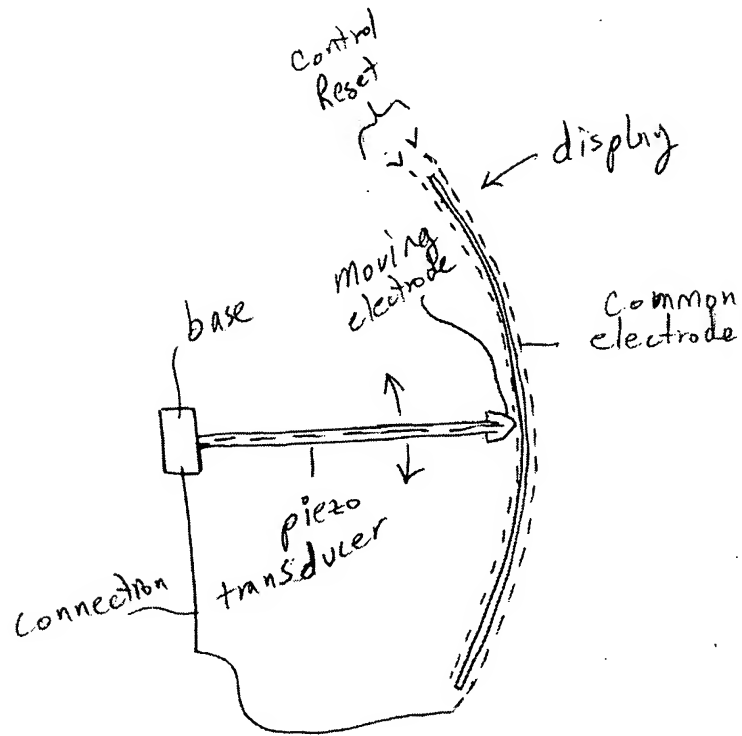 Control
Reset
display
moving
electrode
common
electrode
base
piezo
transducer
connection